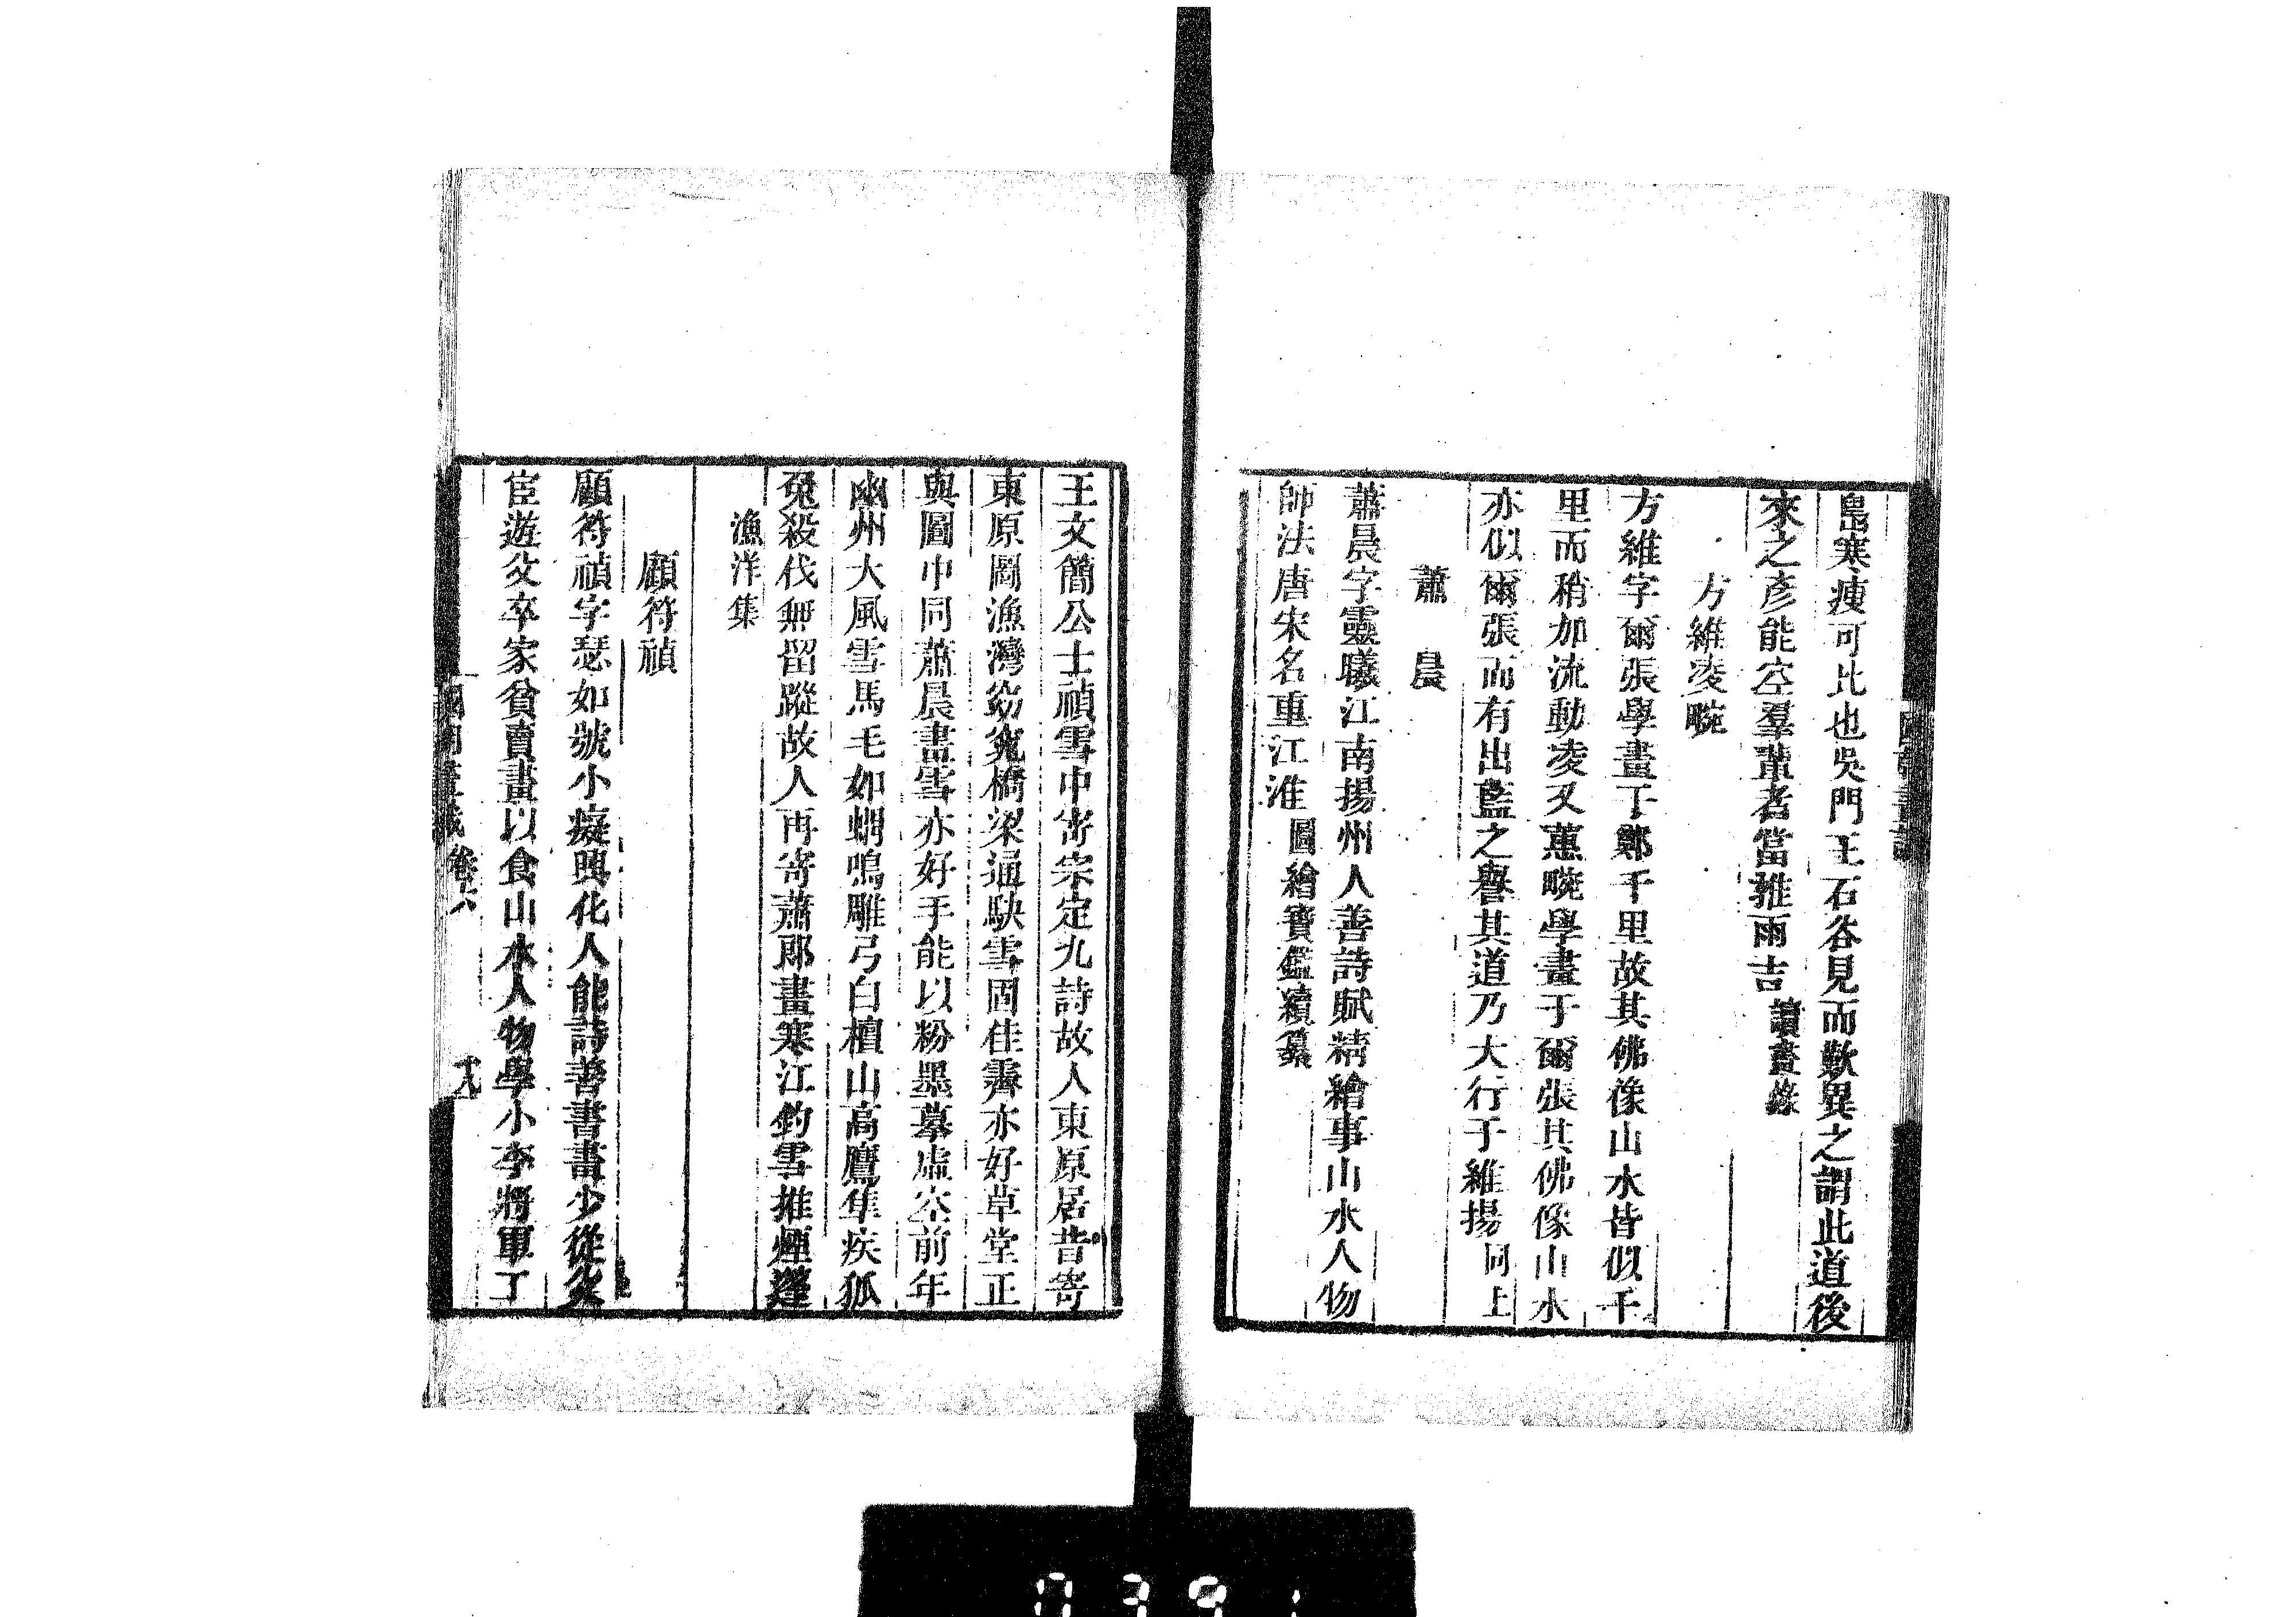 島寒瘦可比也吳門王石谷見而歎異之謂此道後
來之彥能空羣輩者當推雨吉 讀畫錄
方維 凌畹
方維字爾張學畫丁鄭千里故其佛像山水皆似千
里而稍加流動凌又蕙畹學畫于爾張其佛像山水
亦似爾張而有出藍之譽其道乃大行于維揚 同上
蕭晨
蕭晨字靈曦江南揚州人善詩賦精繪事山水人物
師法唐宋名重江淮 圖繪寶鑑續纂
王文簡公士禎雪中寄宋定九詩故人東原居昔寄
東原圖漁灣窈窕橋梁通缺雪固佳霽亦好草堂正
與圖中同蕭晨畫雪亦好手能以粉墨摹虛空前年
幽州大風雪馬毛如蝟鳴雕弓白檀山高鷹隼疾狐
兔殺伐無留蹤故人再寄蕭郎畫寒江釣雪推煙蓬
漁洋集
顧符禎
顧符禎字瑟如號小癡興化人能詩善書畫少從父
宦遊父卒家貧賣畫以食山水人物學小李將軍丁
國朝畫識 卷六 十八